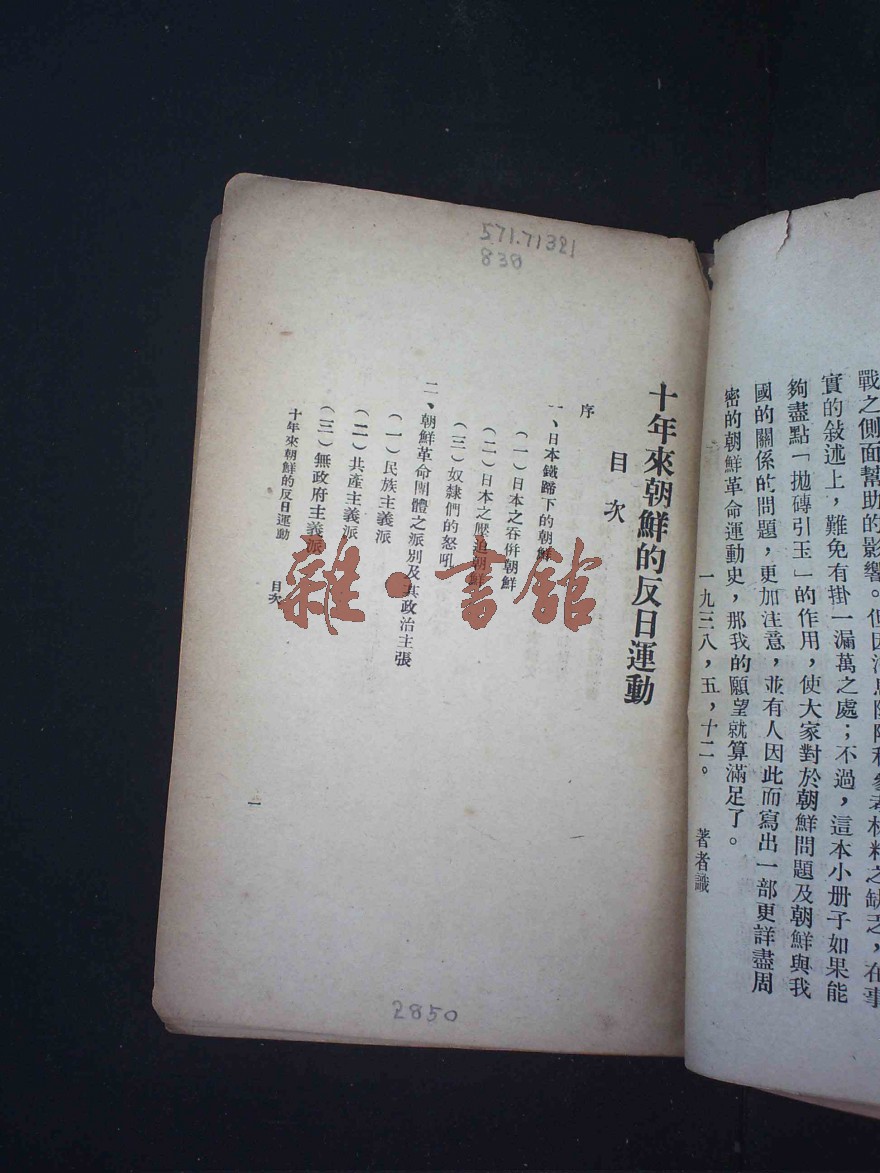 戰之側面幫助的影響。但因
參考材料之缺乏,在事
實的敍述上,難免有掛一漏萬之處;不過,這本小册子如果能
夠盡點「拋磚引玉」的作用,使大家對於朝鮮問題及朝鮮與我
國的關係的問題,更加注意,並有人因此而寫出一部更詳盡周
密的朝鮮革命運動史,那我的願望就算滿足了。
一九三八,五,十二。 著者識
571.71321
830
十年來朝鮮的反日運動
目次
序
一、日本鐵蹄下的朝鮮
(一)日本之吞併朝鮮
(二)日本之壓迫朝鮮
(三)奴隸們的怒吼
二、朝鮮革命團體之派別及其政治主張
(一)民族主義派
(二)共產主義派
(三)無政府主義派
十年來朝鮮的反日運動 目次
一
2850
雜·書館